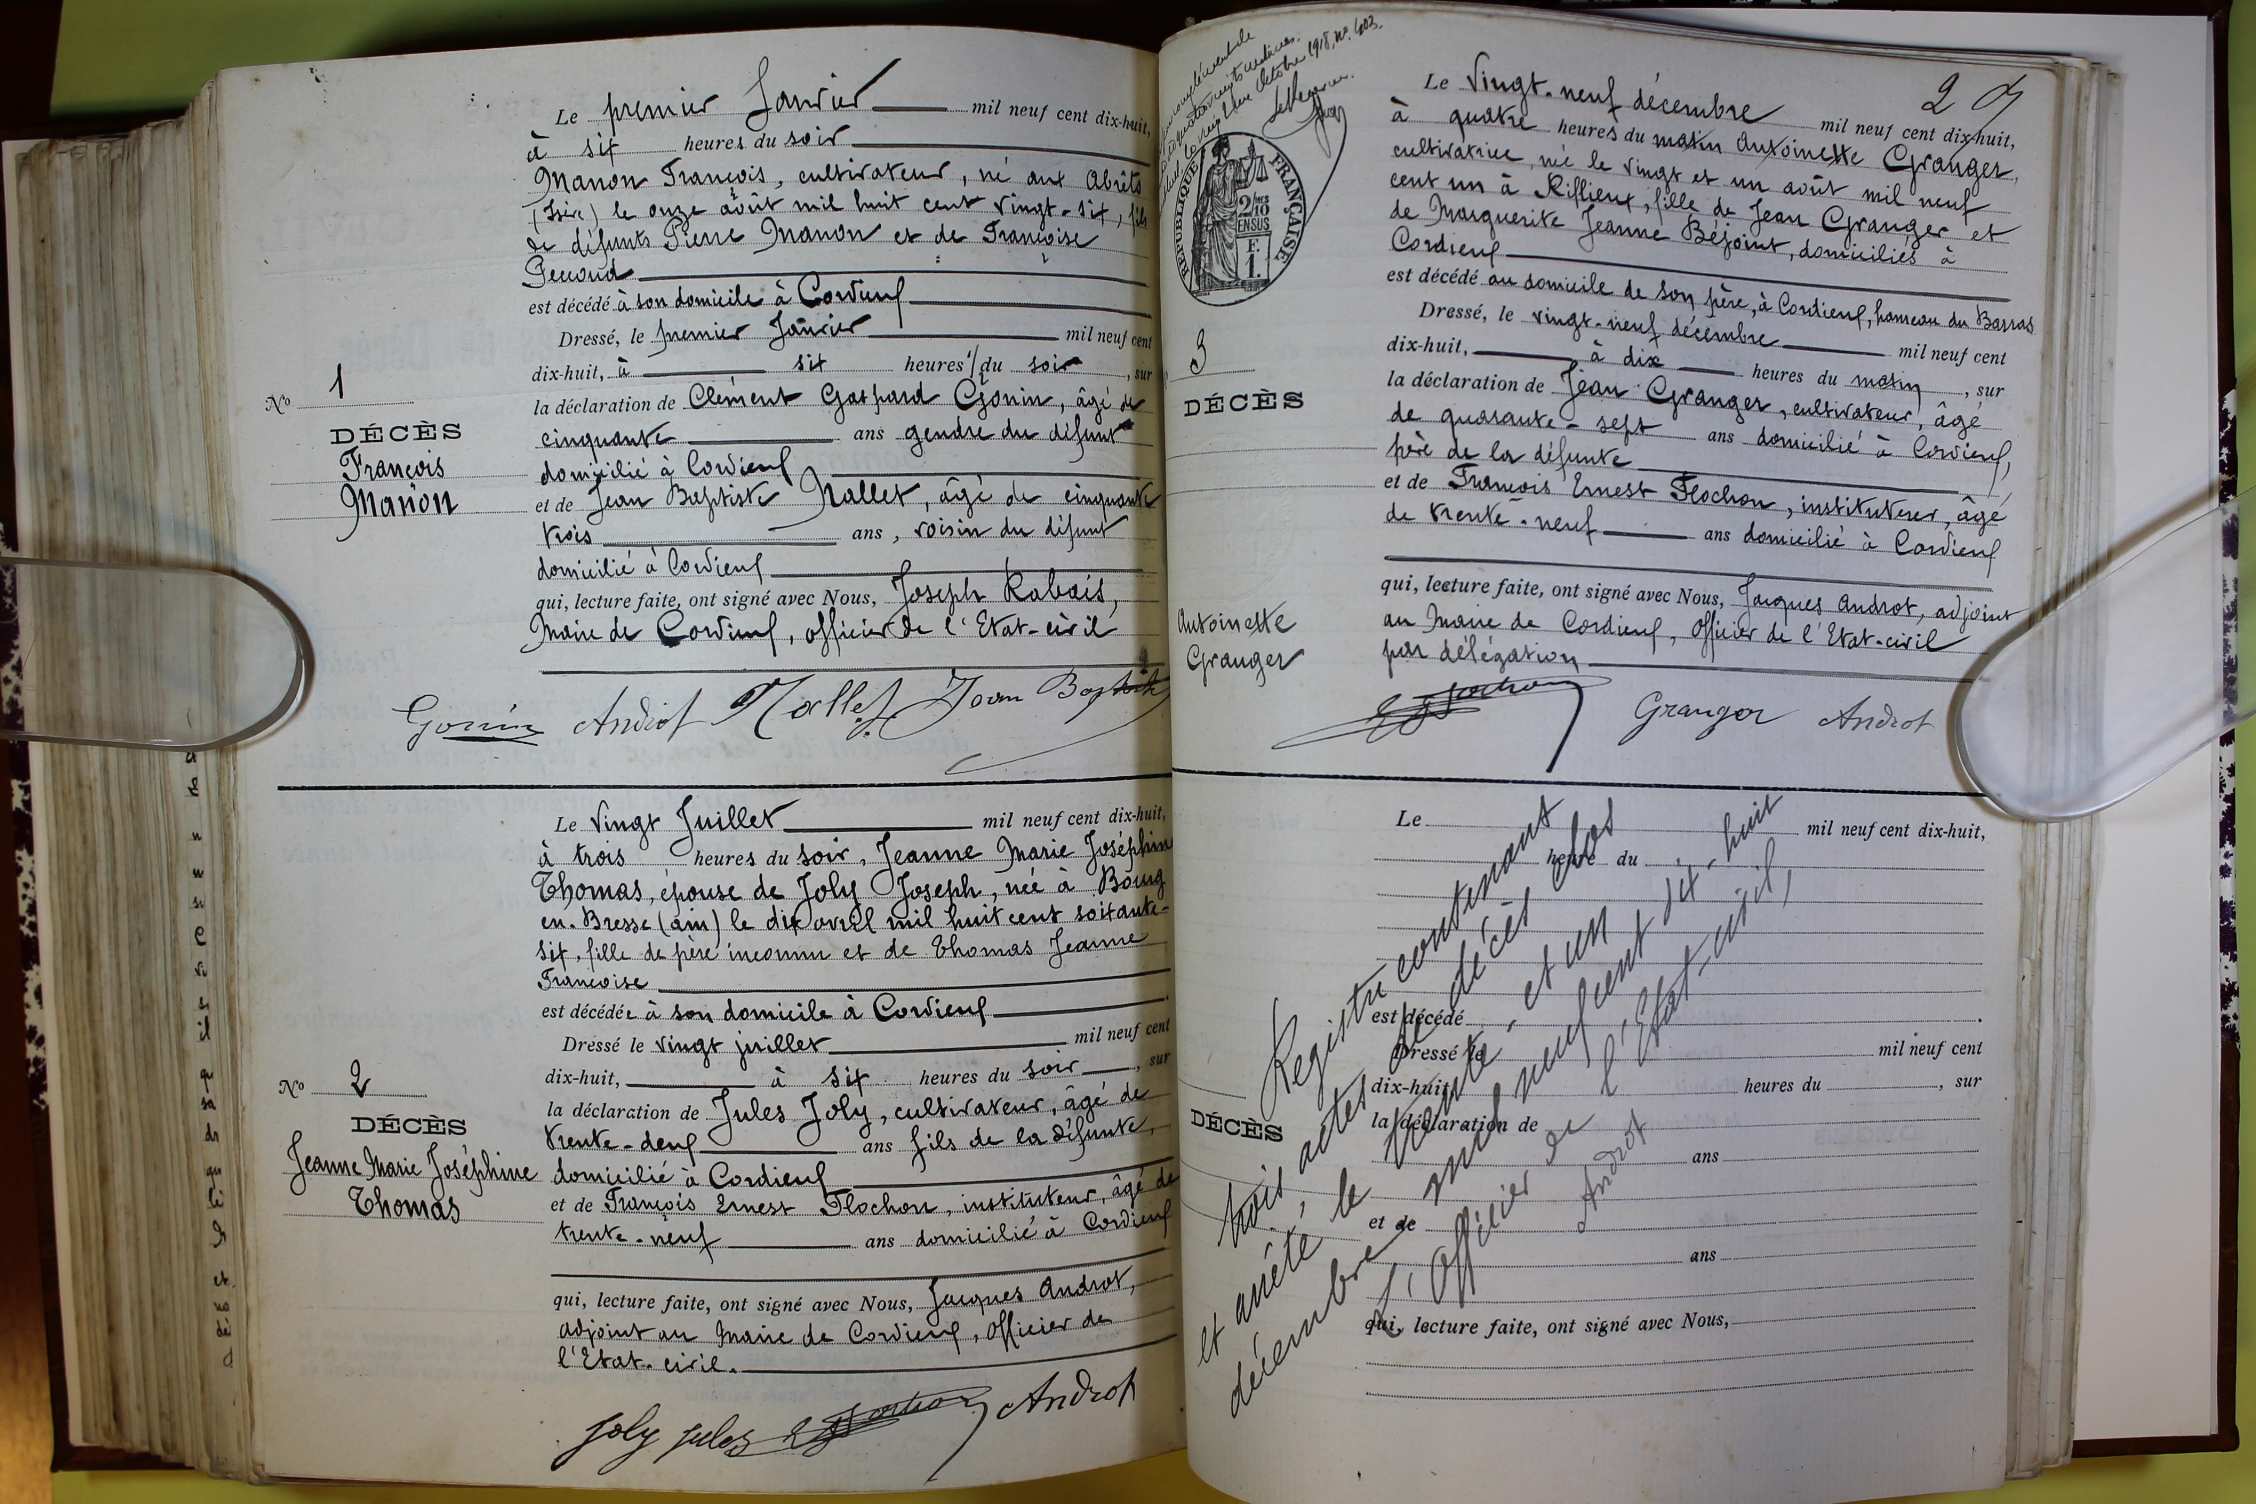 Le premier Janvier mil neuf cent dix-huit,
à six heures du soir
Manon François, cultivateur, né aux Abrêts
(Isère) le onze août mil huit cent vingt-six, fils
de défunts Pierre Manon et de Françoise
Perroud
est décédé à son domicile à Cordieux
Dressé, le premier Janvier mil neuf cent
dix-huit, à six heures du soir, sur
la déclaration de Clément Gaspard Gonin, âgé de
cinquante ans gendre du défunt
domicilié à Cordieux
et de Jean Baptiste Nallet, âgé de cinquante
trois ans, voisin du défunt
domicilié à Cordieux
qui, lecture faite, ont signé avec Nous, Joseph Rabais,
Maire de Cordieux, officier de l'Etat-civil
No 1
DÉCÈS
François
Manon
Gonin Androt Nallet Jean Baptiste
Le vingt Juillet mil neuf cent dix-huit,
à trois heures du soir, Jeanne Marie Joséphine
Thomas, épouse de Joly Joseph, née à Bourg
en-Bresse (ain) le dix avril mil huit cent soixante-
six, fille de père inconnu et de Thomas Jeanne
Françoise
est décédée à son domicile à Cordieux
Dressé le vingt juillet mil neuf cent
dix-huit, à six heures du soir, sur
la déclaration de Jules Joly, cultivateur, âgé de
trente-deux ans fils de la défunte,
domicilié à Cordieux
et de François Ernest Flochon, instituteur, âgé de
trente-neuf ans domicilié à Cordieux
qui, lecture faite, ont signé avec Nous, Jacques Androt,
adjoint au Maire de Cordieux, officier de
l'Etat-civil.
No 2
DÉCÈS
Jeanne Marie Joséphine
Thomas
Joly Jules Flochon Androt
2
Octobre 1918, No. 403.
RÉPUBLIQUE FRANÇAISE
2/10 EN SUS
F.
1.
Le vingt-neuf décembre mil neuf cent dix-huit,
à quatre heures du matin Antoinette Granger,
cultivatrice, née le vingt et un août mil neuf
cent un à Riffieux, fille de Jean Granger et
de Marguerite Jeanne Béjoint, domiciliés à
Cordieux
est décédé au domicile de son père, à Cordieux, hameau du Barras
Dressé, le vingt-neuf décembre mil neuf cent
dix-huit, à dix heures du matin, sur
la déclaration de Jean Granger, cultivateur, âgé
de quarante-sept ans domicilié à Cordieux,
père de la défunte
et de François Ernest Flochon, instituteur, âgé
de trente-neuf ans domicilié à Cordieux
qui, lecture faite, ont signé avec Nous, Jacques Androt, adjoint
au Maire de Cordieux, officier de l'Etat-civil
par délégation
3
DÉCÈS
Antoinette
Granger
Flochon Granger Androt
Le mil neuf cent dix-huit,
heure du
est décédé
Dressé le mil neuf cent
dix-huit heures du , sur
la déclaration de
ans
et de
ans
qui, lecture faite, ont signé avec Nous,
DÉCÈS
Registre contenant
trois actes de décès clos
et arrêté, le trente-et-un
décembre mil neuf cent dix-huit
L'Officier de l'Etat-civil,
Androt